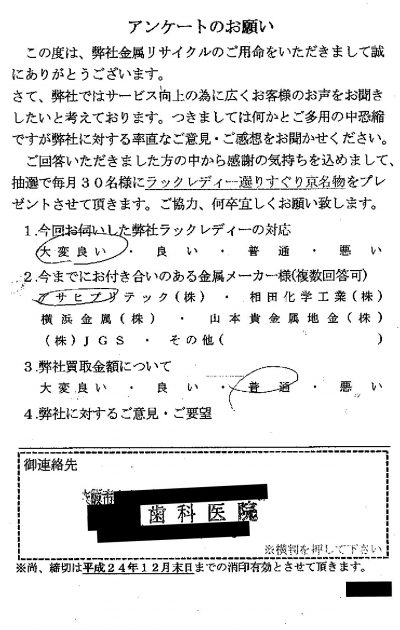 アンケートのお願い
この度は、弊社金属リサイクルのご用命をいただきまして誠
にありがとうございます。
さて、弊社ではサービス向上の為に広くお客様のお声をお聞き
したいと考えております。つきましては何かとご多用の中恐縮
ですが弊社に対する率直なご意見・ご感想をお聞かせください。
ご回答いただきました方の中から感謝の気持ちを込めまして、
抽選で毎月30名様にラックレディー選りすぐり京名物をプレ
ゼントさせて頂きます。ご協力、何卒宜しくお願い致します。
1.今回お伺いした弊社ラックレディーの対応
大変良い ・ 良い ・ 普通 ・ 悪い
2.今までにお付き合いのある金属メーカー様(複数回答可)
アサヒプリテック(株) ・ 相田化学工業(株)
横浜金属(株) ・ 山本貴金属地金(株)
(株)JGS ・ その他( )
3.弊社買取金額について
大変良い ・ 良い ・ 普通 ・ 悪い
4.弊社に対するご意見・ご要望
御連絡先
阪市
歯科医院
※横判を押して下さい
※尚、締切は平成24年12月末日までの消印有効とさせて頂きます。